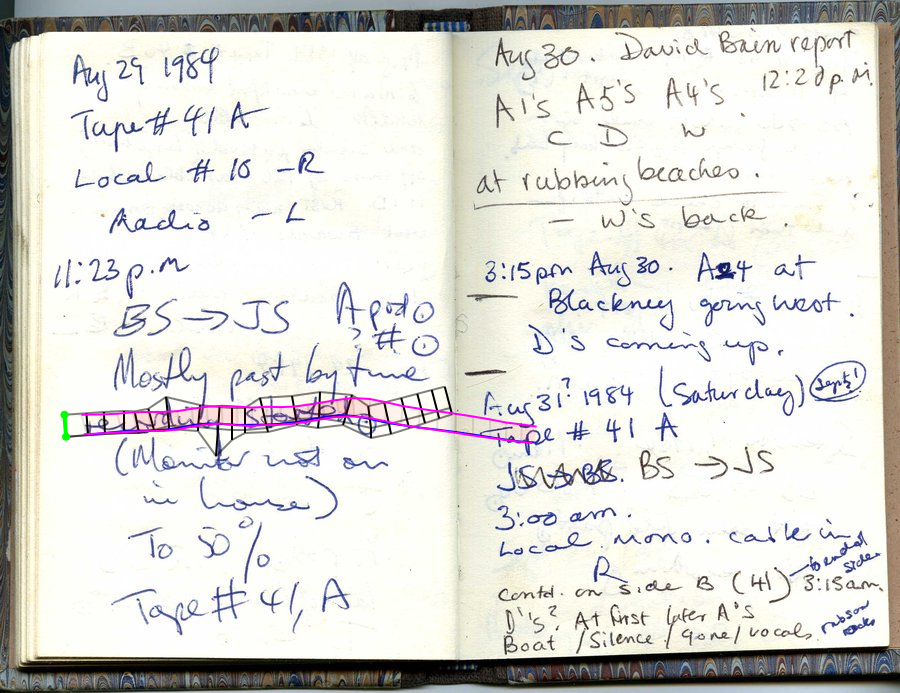 Aug 29 1984
Tape # 41 A
Local # 10 - R
Radio - L
11:23 p.m
BS → JS A pod ①
? # ①
Mostly past by time
recording started
(Monitor not on
in house)
To 50%
Tape # 41, A
Aug 30. David Bain report
12:20 p.m.
A1's A5's A4's
C D W
at rubbing beaches.
- W's back.
3:15pm Aug 30. A4 at
Blackney going west.
D's coming up.
Aug 31? 1984 (Saturday) Sept 1
Tape # 41 A
BS → JS
3:00 am.
Local mono. cable in
R
Contd. on side B (41) 3:15am.
D's? At first later A's
Boat / Silence / gone / vocals